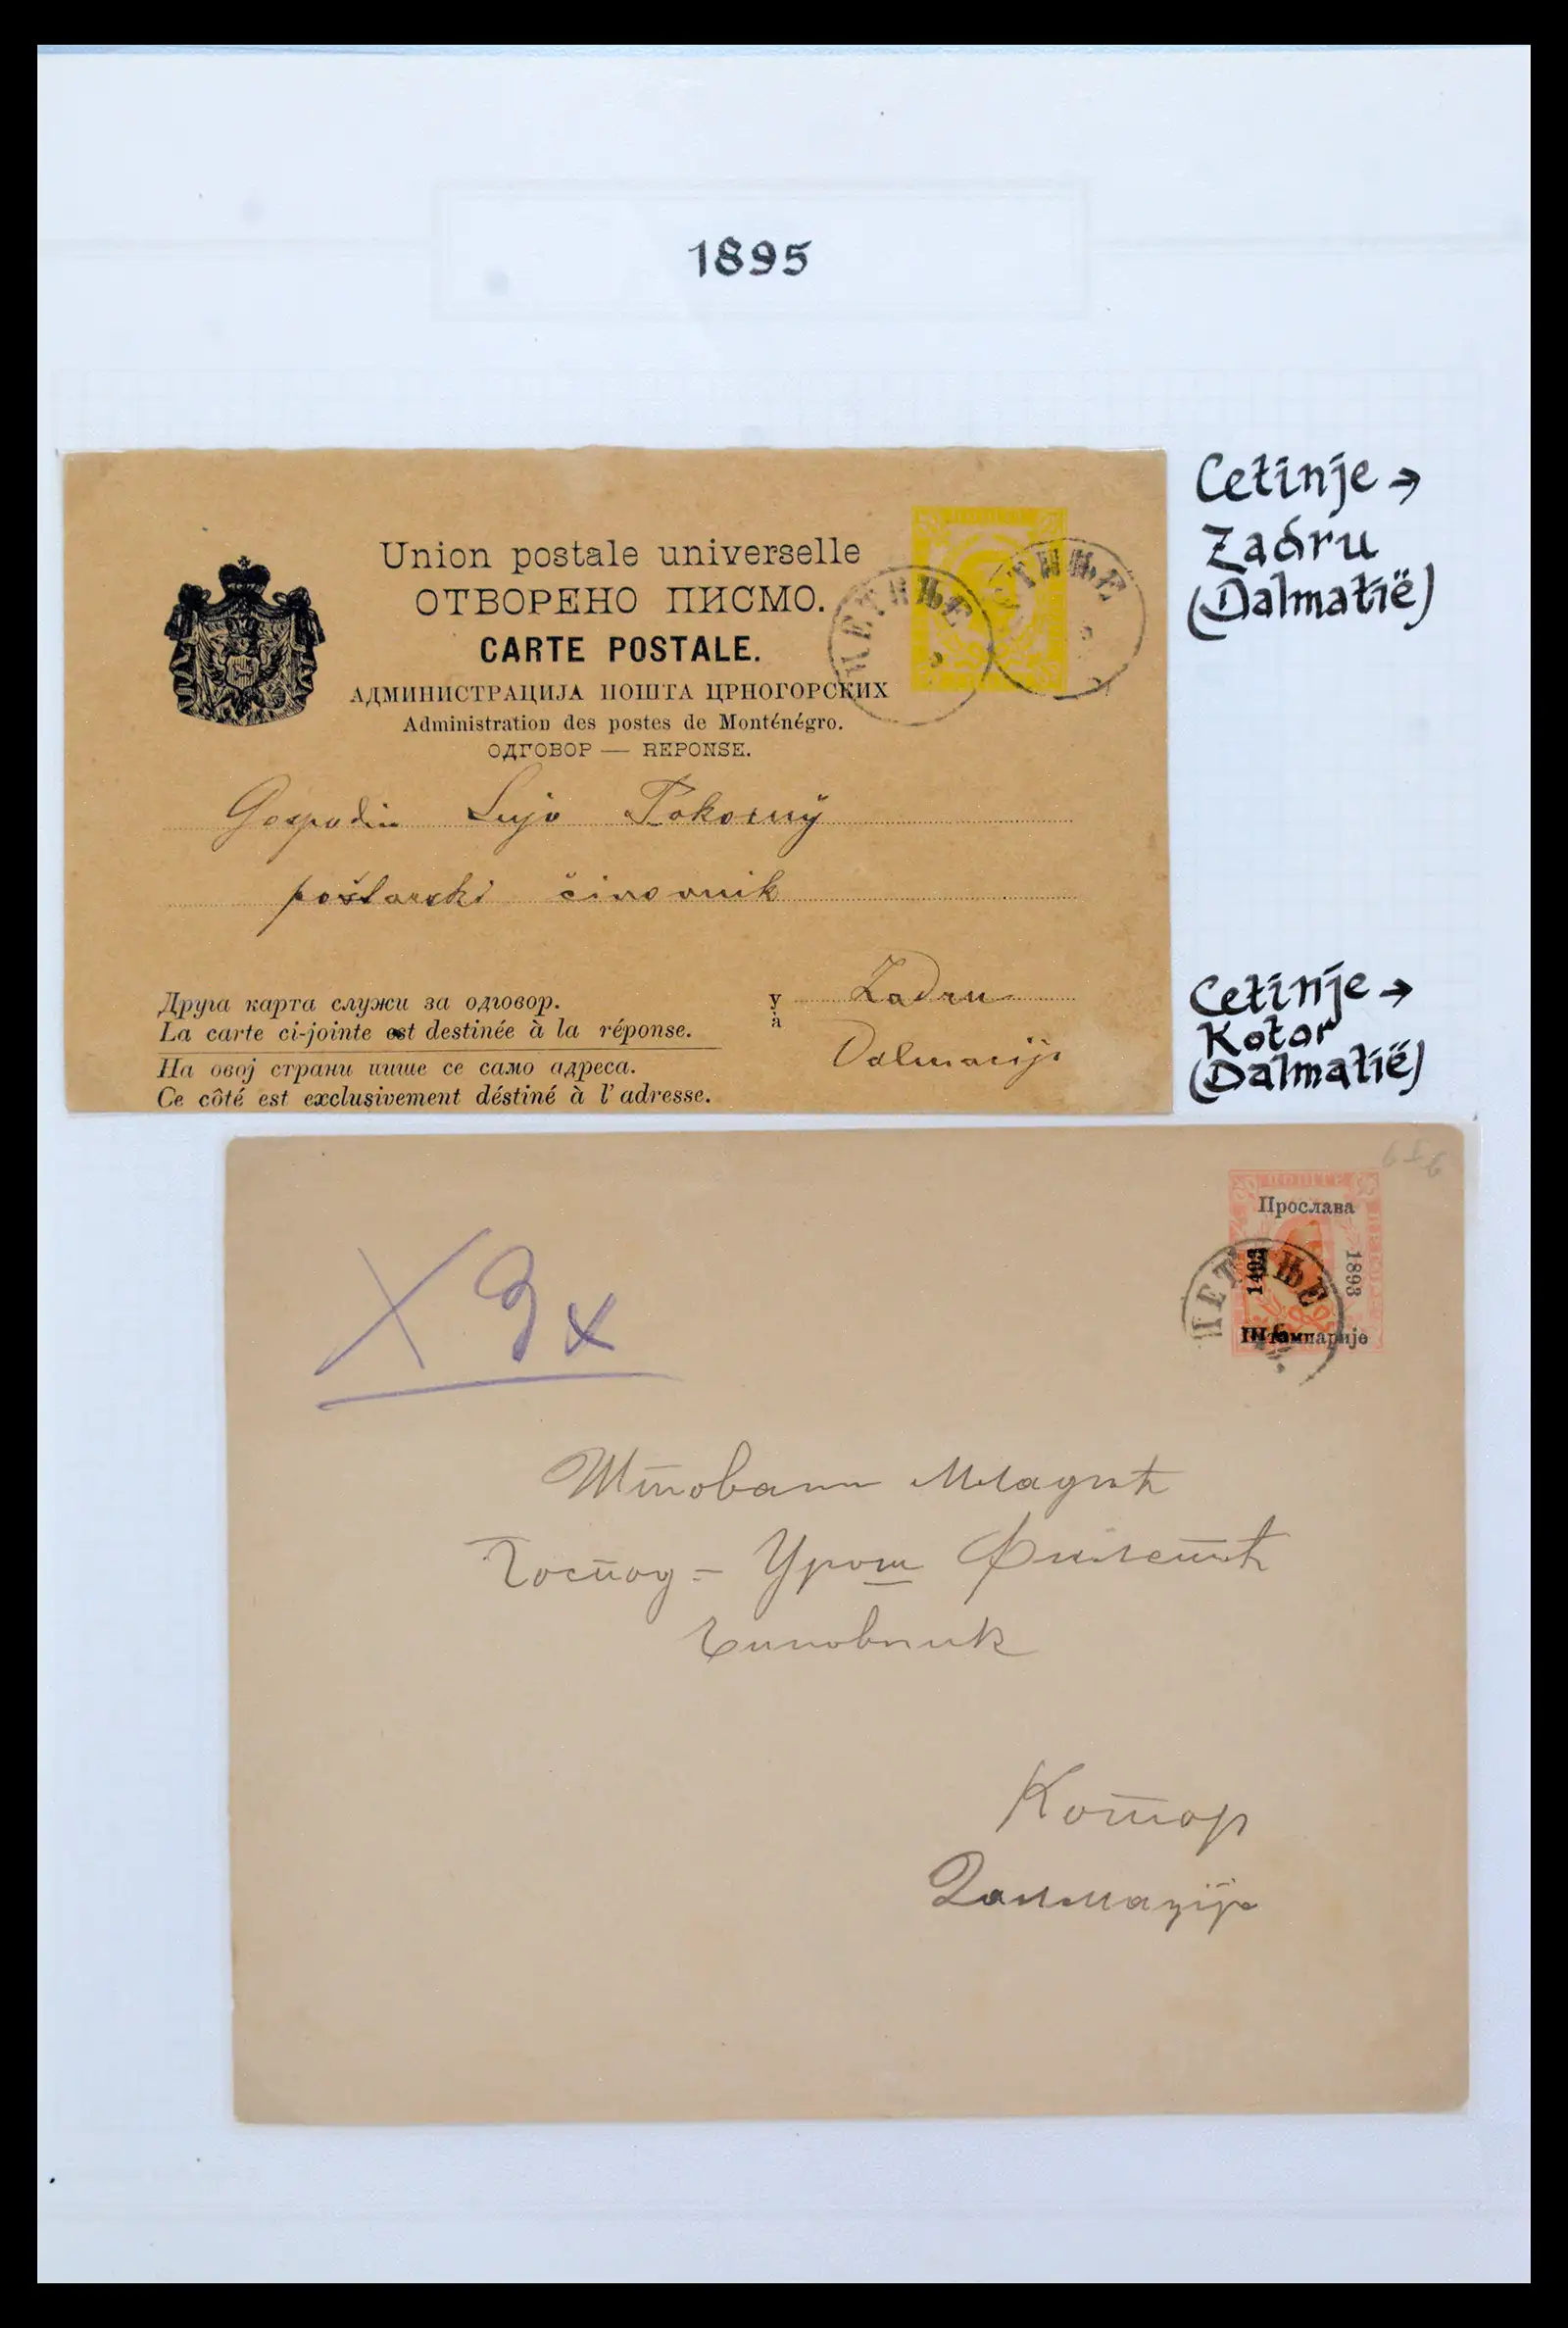 1895
Cetinje →
Zadru
(Dalmatië)
Union postale universelle
ОТВОРЕНО ПИСМО.
CARTE POSTALE.
АДМИНИСТРАЦИЈА ПОШТА ЦРНОГОРСКИХ
Administration des postes de Monténégro.
ОДГОВОР — REPONSE.
ЦЕТИЊЕ
ЦЕТИЊЕ
Gospodin Lujo Pokorny
poštarski činovnik
Друга карта служи за одговор.
La carte ci-jointe est destinée à la réponse.
На овој страни пише се само адреса.
Ce côté est exclusivement déstiné à l'adresse.
у Zadru
à
Dalmacija
Cetinje →
Kotor
(Dalmatië)
ПОШТЕ
Прослава
1493
1893
Штампарије
ЦЕТИЊЕ
Штовани Младић
Господ= Урош
Чиновник
Котор
Далмација